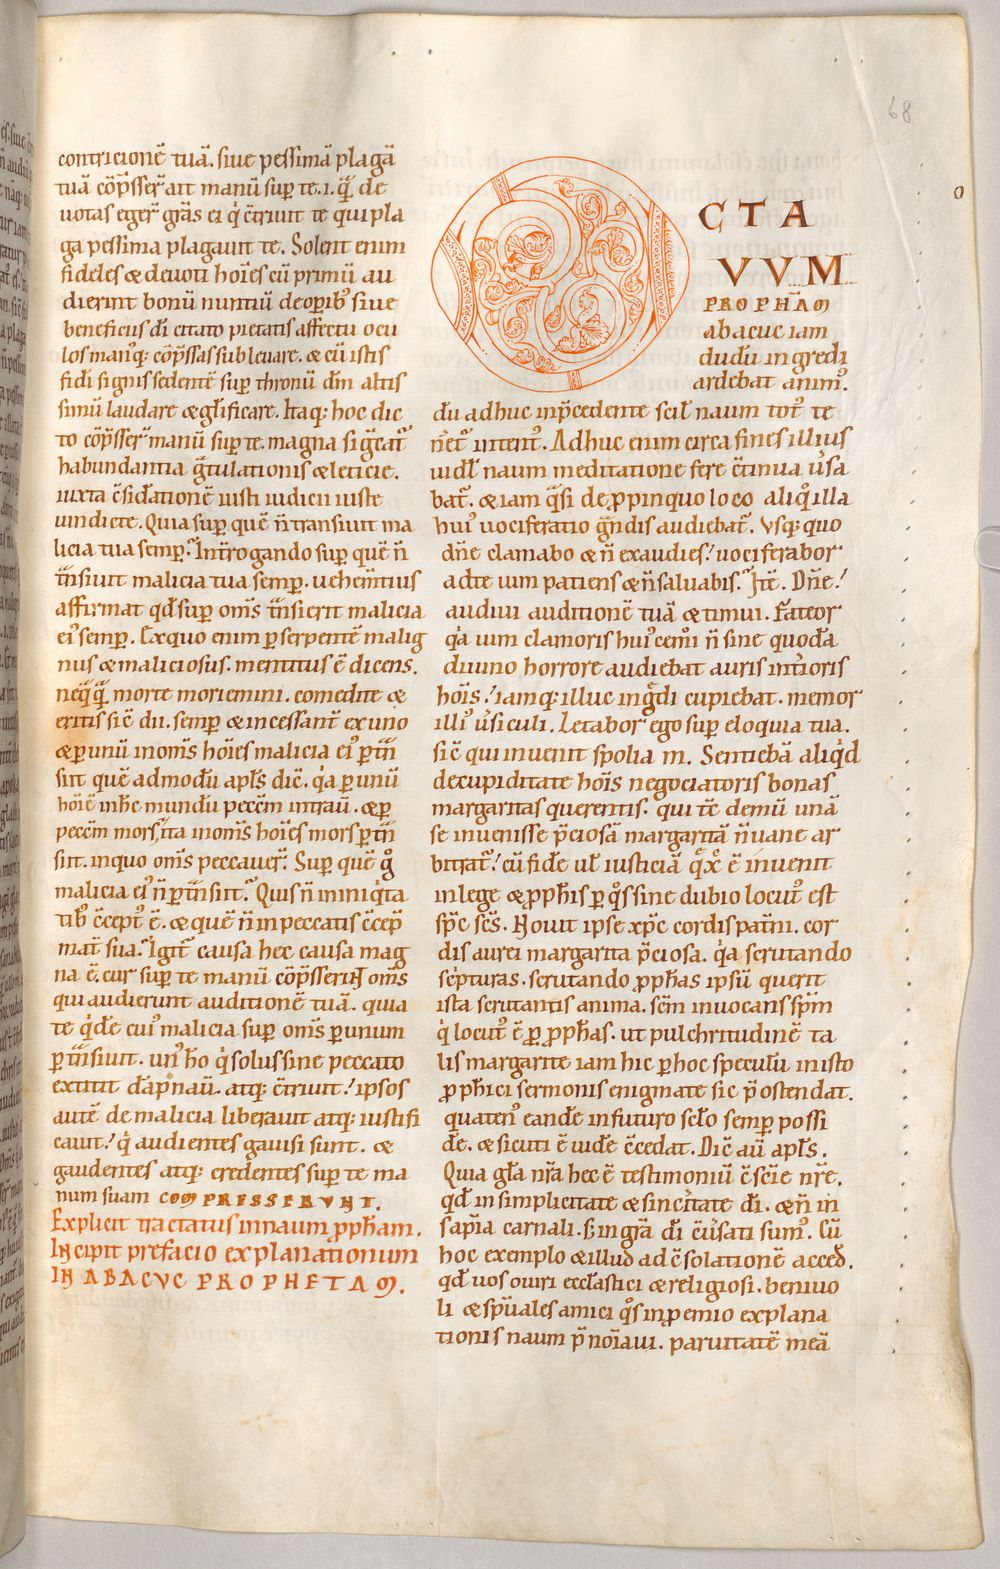 68
contricionē tuā. siue pessimā plagā
tuā cōp̄sser̄ aīt manū sup̱ te. .i. q̄ꝗ de
uotas eger̄ grās ei q̇ ɔ̄triuit te qui pla
ga pessima plagauit te. Solent enim
fideles ⁊ deuoti hoīes cū primū au
dierint bonū nuntiū de op̱ibꝰ siue
beneficiis dī citato pietatis affectu ocu
los manꝰq; cōp̄ssas subleuare. ⁊ cū istis
fidī signis sedentē sup̱ thronū dn̄m altis
simū laudare ⁊ gl̄ificare. Itaq; hoc dic
to cōp̄sser̄ manū sup̱ te. magna sig̅catꝰ
habundantia g̅tulationis ⁊ leticie.
iuxta ɔ̄sid̄ationē iusti iudicii iuste
uindicte. Quia sup̱ quē n̄ transiuit ma
licia tua semp̱. Int̄rogando sup̱ quē n̄
t̄nsiuit malicia tua semp̱. uehem̄tius
affirmat qd̄ sup̱ om̄s t̄nsierit malicia
eiꝰ semp̱. Ex quo enim p̱ serpentē malig
nus ⁊ maliciosus. mentitus ē dicens.
neq̄ꝗ morte moriemini. comedite ⁊
eritis sic̄ dii. semp̱ ⁊ incessant̄ ex uno
⁊ p̱ unū in om̄s hoīes malicia eiꝰ p̱t̄n
siit quē admodū apl̄s dic̄. q̇a p̱ unū
hoīe in hc̄ mundū pecc̄m intrau̅. ⁊ p̱
pecc̄m mors, ita in om̄s hoīes mors p̱t̄n
siit. in quo om̄s peccauer̄. Sup̱ quē g̊
malicia eiꝰ n̄ p̱t̄nsiit. Quis n̄ in iniq̇ta
tibꝰ ɔ̄ceptꝰ ē. ⁊ quē n̄ in peccatis ɔ̄cep̄
mat̄ sua. Igit̄ causa hec causa mag
na ē. cur sup̱ te manū cōp̄sserunt om̄s
qui audierunt auditionē tuā. quia
te q̇de cuiꝰ malicia sup̱ om̄s p̱ unum
p̱t̄nsiuit. unꝰ h̊o q̇ solus sine peccato
extitit dāpnau̅. atq; ɔ̄triuit. ipsos
autē de malicia liberauit atq; iustifi
cauit. q̇ audientes gauisi sunt. ⁊
gaudentes atq; credentes sup̱ te ma
num suam COMPRESSERVNT.
Explicit tractatus in naum ꝓph̄am.
Incipit prefacio explanationum
IN ABACVC PROPHETAM.
OCTA
VVM
PROPHAM
abacuc iam
dudū ingredi
ardebat animꝰ.
dū adhuc in p̄cedente scil̄ naum totꝰ te
n̄etꝰ intentꝰ. Adhuc enim circa fines illius
uidl̄ naum meditatione fere ɔ̄tinua u̇sa
bat̄. ⁊ iam q̄si de ꝓpinquo loco aliq̊ illa
huiꝰ uociferatio g̅ndis audiebat̄. Vsq; quo
dn̄e clamabo ⁊ n̄ exaudies! uociferabor
ad te uim patiens ⁊ n̄ saluabis. It̄e. Dn̄e!
audiui auditionē tuā ⁊ timui. Fateor
q̇a uim clamoris huiꝰcem̄i n̄ sine quoda̅
diuino horrore audiebat auris int̄ioris
hoīs! iamq; illuc ing̅di cupiebat. memor
illiꝰ u̇siculi. Letabor ego sup̱ eloquia tua.
sic̄ qui inuenit spolia m̄. Sentiebā aliq̇d
de cupiditate hoīs negociatoris bonas
margaritas querentis. qui tc̄ demū unā
se inuenisse p̄ciosā margaritā n̄ uane ar
bitrat̄! cū fidē ul̄ iusticiā q̄ xp̄c ē inuenit
in lege ⁊ ꝓphis p̱ q̊s sine dubio locutꝰ est
sp̄c sc̄s. Nouit ipse xp̄c cordis pat̄ni. cor
dis aurei margarita p̄ciosa. q̇a scrutando
sc̄pturas. scrutando ꝓphas ipsū querit
ista scrutantis anima. sc̄m inuocans sp̄m
q̇ locutꝰ ē p̱ ꝓphas. ut pulchritudinē ta
lis margarite iam hic p̱ hoc speculū in isto
ꝓphici sermonis enigmate sic p̄ ostendat.
quatenꝰ eande in futuro sc̄lo semp̱ possi
de. ⁊ sicuti ē uide ɔ̄cedat. Dic̄ au̅ apl̄s.
Quia gl̄a nr̄a hec ē testimoniū ɔ̄scīe nr̄e.
qd̄ in simplicitate ⁊ sinc̄itate dī. ⁊ n̄ in
sap̄ia carnali. s; in gr̄a dī ɔ̄u̇sati sumꝰ. Cū
hoc exemplo ⁊ illud ad ɔ̄solationē acced̄.
qd̄ uos ouiri eccl̄astici ⁊ religiosi. beniuo
li ⁊ sp̄uales amici q̊s in p̱emio explana
tionis naum p̄noīaui. paruitatē meā
o